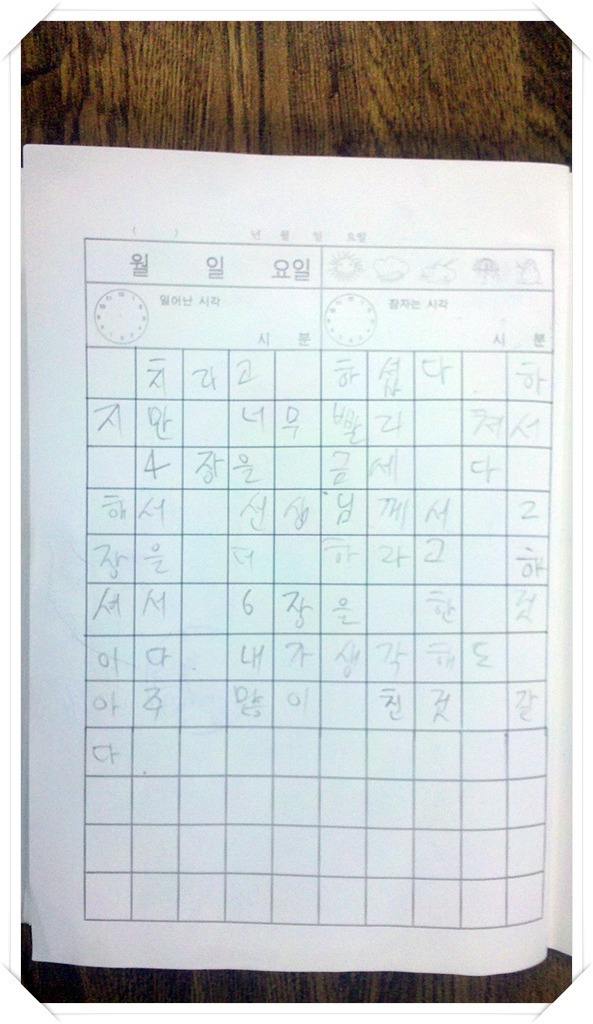 ( ) 년 월 일 요일
월 일 요일
일어난 시각 잠자는 시각
시 분 시 분
치라고 하셥다. 하
지만 너무 빨리 쳐서
4장을 금세 다
해서 선생님께서 2
장을 더 하라고 하
셔서 6장을 한 것
이다. 내가 생각해도
아주 많이 친 것 갈
다.